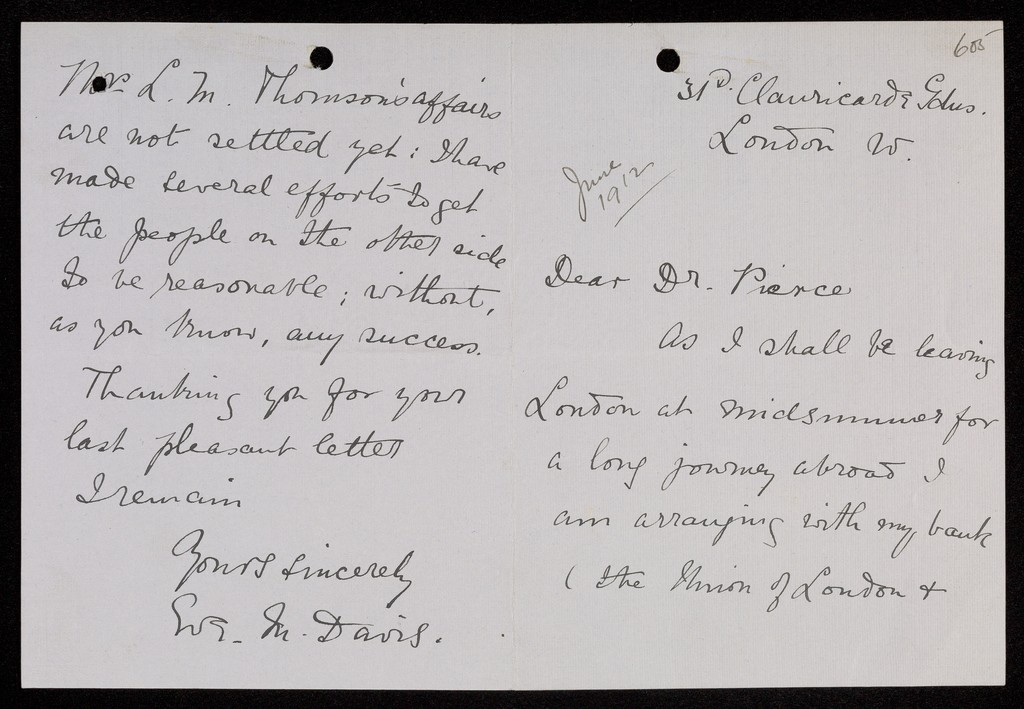 605
31D. Clanricarde Gdns.
London W.
June
1912
Dear Dr. Pierce
As I shall be leaving
London at midsummer for
a long journey abroad I
am arranging with my bank
( the Union of London &
Mrs L. M. Thomson's affairs
are not settled yet: I have
made several efforts to get
the people on the other side
to be reasonable; without,
as you know, any success.
Thanking you for your
last pleasant letter
I remain
Yours sincerely
Eva. M. Davis.